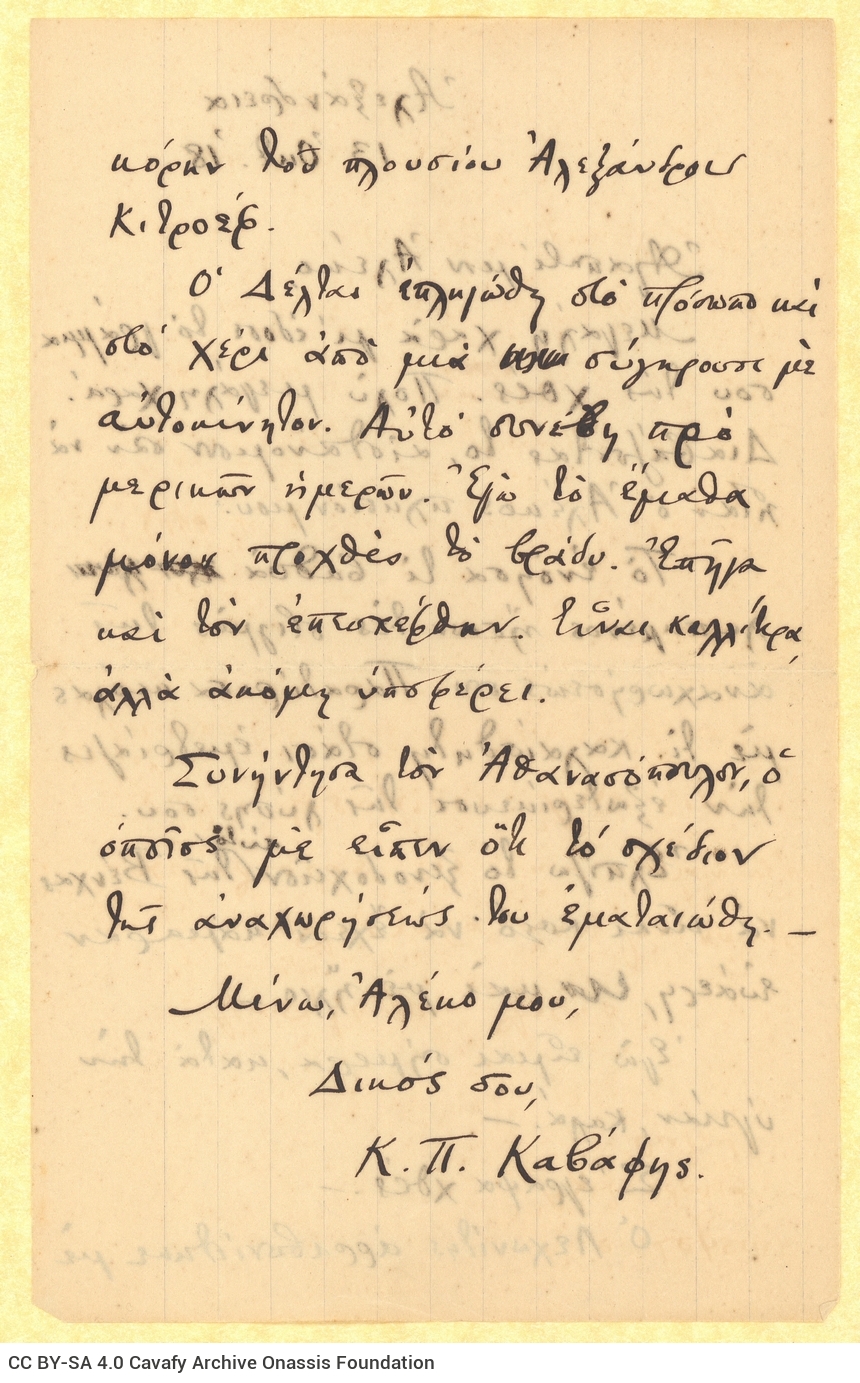 κόρην τοῦ πλουσίου Ἀλεξάνδρου
Κιτροέφ.
Ὁ Δέλτας ἐπληγώθη στὸ πρόσωπο καὶ
στὸ χέρι ἀπὸ μιὰ σύγκρουσι μὲ
αὐτοκίνητον. Αὐτὸ συνέβη πρὸ
μερικῶν ἡμερῶν. Ἐγὼ τὸ ἔμαθα
μόνον προχθὲς τὸ βράδυ. Ἐπῆγα
καὶ τὸν ἐπεσκέφθην. Εἶναι καλλίτερα,
ἀλλὰ ἀκόμη ὑποφέρει.
Συνήντησα τὸν Ἀθανασόπουλον, ὁ
ὁποῖος μὲ εἶπεν ὅτι τὸ σχέδιον
τῆς ἀναχωρήσεώς του ἐματαιώθη. —
Μένω, Ἀλέκο μου,
Δικός σου,
Κ. Π. Καβάφης.
CC BY-SA 4.0 Cavafy Archive Onassis Foundation